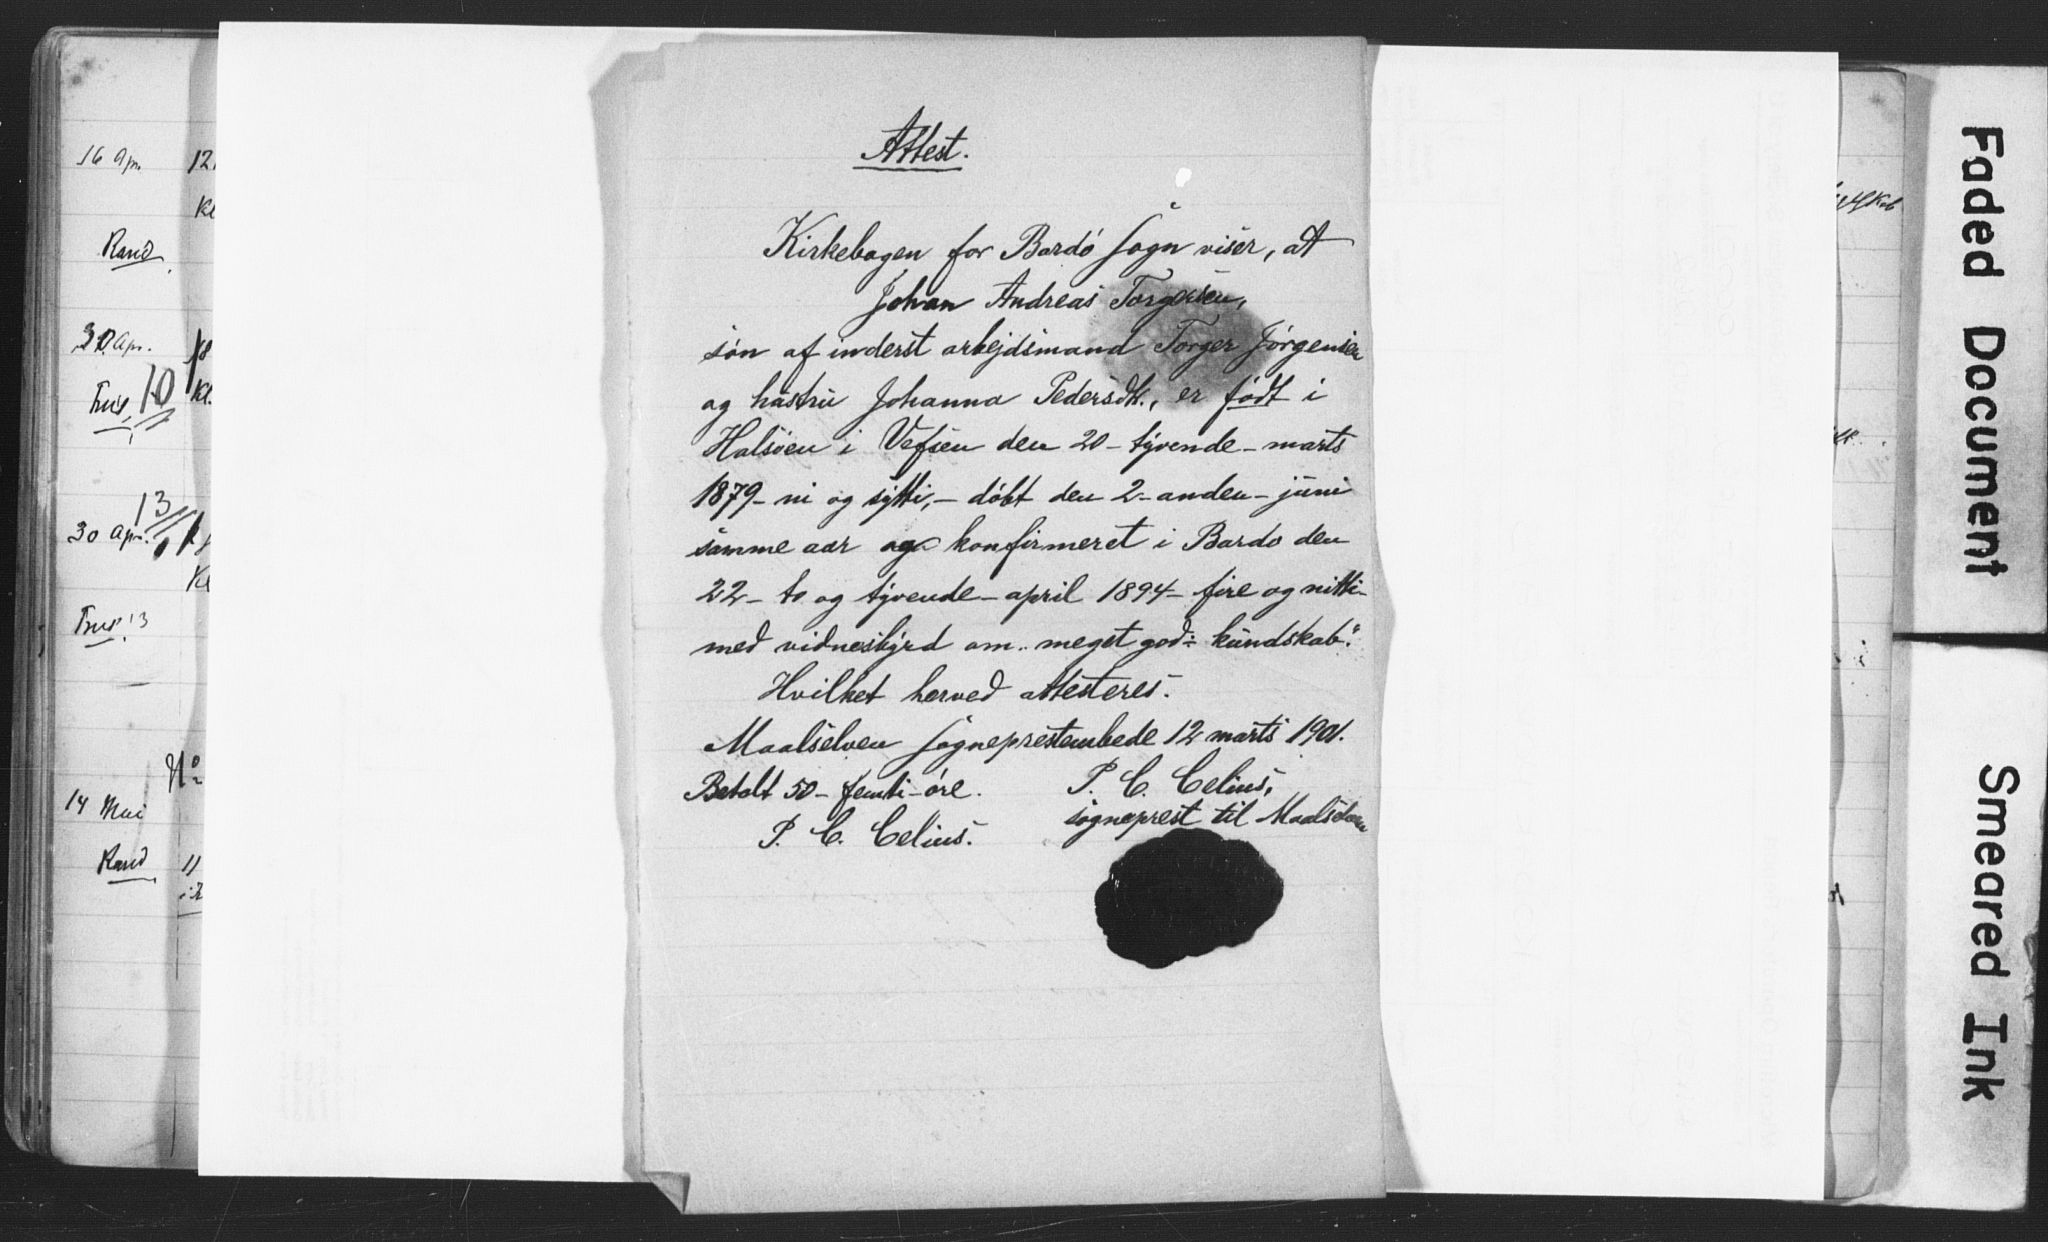 16 Apr.
12
Kl
Rand
30 Apr.
18
Kl.
10
13
30 Apr.
Kl
13
No
14 Mai
Rand
11
Attest.
Kirkebogen for Bardö Sogn viser, at
Johan Andreas Torgersen,
sön af inderst arbejdsmand Torger Jörgensen
og hustru Johanna Pedersdtr., er födt i
Halsöen i Vefsen den 20 - tyvende - marts
1879 - ni og sytti, - döbt den 2 - anden - juni
samme aar og konfirmeret i Bardo den
22 - to og tyvende - april 1894 - fire og nitti -
med vidnesbyrd om „meget god kundskab“.
Hvilket herved attesteres.
Maalselven sogneprestembede 12 marts 1901.
Betalt 50 - femti - öre.
P. C. Celius.
P. C. Celius,
sogneprest til Maalselven
Faded Document
Smeared Ink